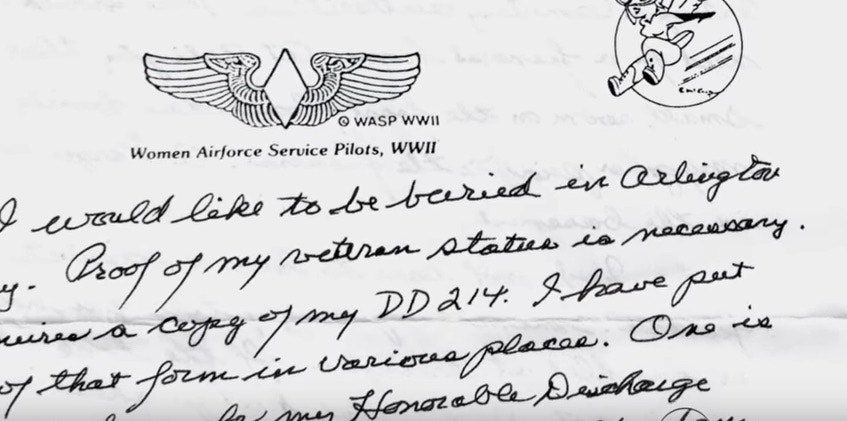 © WASP WWII
Women Airforce Service Pilots, WWII
I would like to be buried in Arlington
y. Proof of my veteran status is necessary.
uires a copy of my DD 214. I have put
of that form in various places. One is
my Honorable Discharge